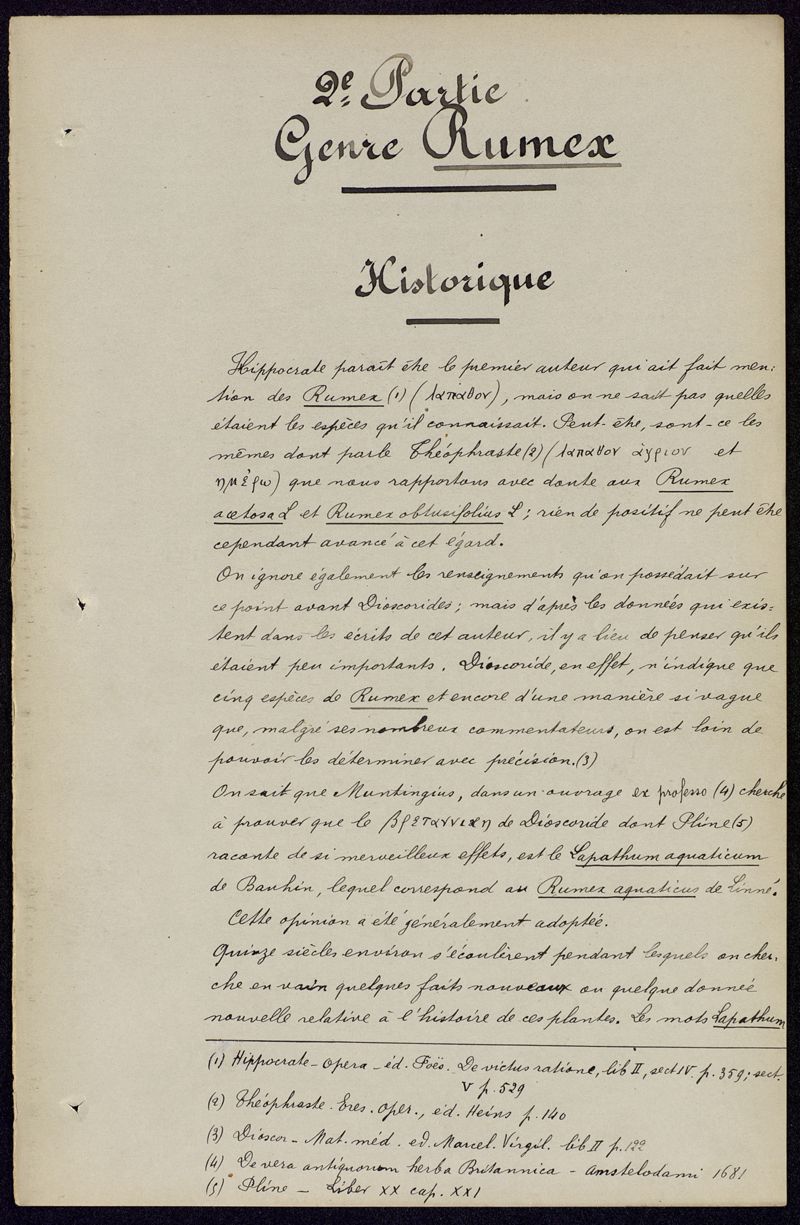 2e Partie
Genre Rumex
Historique
Hippocrate paraît être le premier auteur qui ait fait men-
tion des Rumex (1) (λαπαθον), mais on ne sait pas quelles
étaient les espèces qu'il connaissait. Peut-être, sont-ce les
mêmes dont parle Théophraste (2) (λαπαθον άγριον et
ημέρω) que nous rapportons avec doute aux Rumex
acetosa L et Rumex obtusifolius L ; rien de positif ne peut être
cependant avancé à cet égard.
On ignore également les renseignements qu'on possédait sur
ce point avant Dioscorides ; mais d'après les données qui exis-
tent dans les écrits de cet auteur, il y a lieu de penser qu'ils
étaient peu importants. Dioscoride, en effet, n'indique que
cinq espèces de Rumex et encore d'une manière si vague
que, malgré ses nombreux commentateurs, on est loin de
pouvoir les déterminer avec précision. (3)
On sait que Muntingius, dans un ouvrage ex professo (4) cherche
à prouver que le βρεταννικη de Dioscoride dont Pline (5)
raconte de si merveilleux effets, est le Lapathum aquaticum
de Bauhin, lequel correspond au Rumex aquaticus de Linné.
Cette opinion a été généralement adoptée.
Quinze siècles environ s'écoulèrent pendant lesquels on cher-
che en vain quelques faits nouveaux ou quelque donnée
nouvelle relative à l'histoire de ces plantes. Les mots Lapathum
(1) Hippocrate - Opera - éd. Foës. De victus ratione, lib II, sect IV p. 359; sect.
V p. 529
(2) Théophraste. Eres. Oper., éd. Heins p. 140
(3) Dioscor - Mat. méd. ed. Marcel. Virgil. lib II p. 122
(4) De vera antiquorum herba Britannica - Amstelodami 1681
(5) Pline - Liber XX cap. XXI